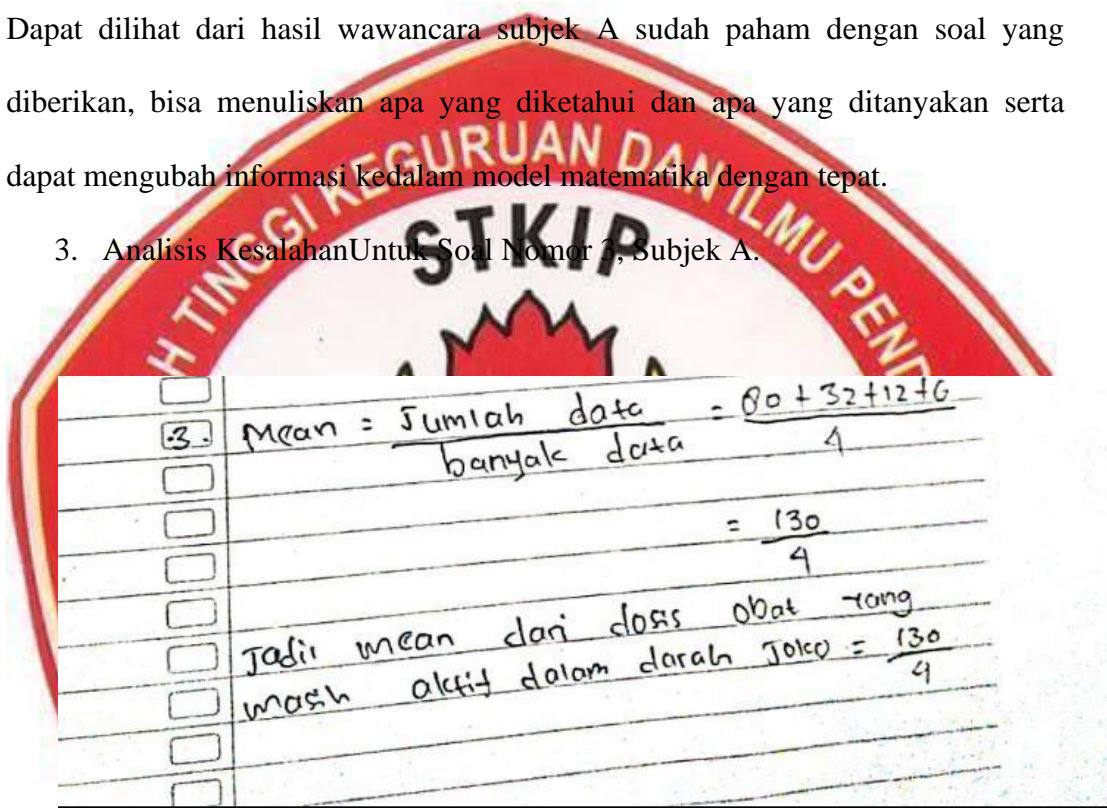 Dapat dilihat dari hasil wawancara subjek A sudah paham dengan soal yang
diberikan, bisa menuliskan apa yang diketahui dan apa yang ditanyakan serta
dapat mengubah informasi kedalam model matematika dengan tepat.
3. Analisis KesalahanUntuk Soal Nomor 3, Subjek A.
H TINGGI KEGURUAN DAN ILMU PEND
STKIP
.3. Mean = Jumlah data / banyak data = 80 + 32 + 12 + 6 / 4
= 130 / 4
Jadi mean dari dosis obat yang
masih aktif dalam darah Joko = 130 / 4